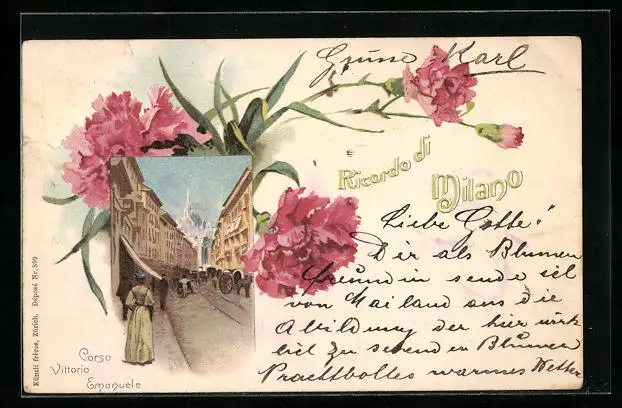 Grüsse Karl
Ricordo di
Milano
Liebe Gotte!
Dir als Blumen
freundin sende ich
von Mailand aus die
Abildung der hier wirk
lich zu sehenden Blumen
Prachtvolles warmes Wetter
Corso
Vittorio
Emanuele
Künzli frères, Zürich. Déposé Nr. 890